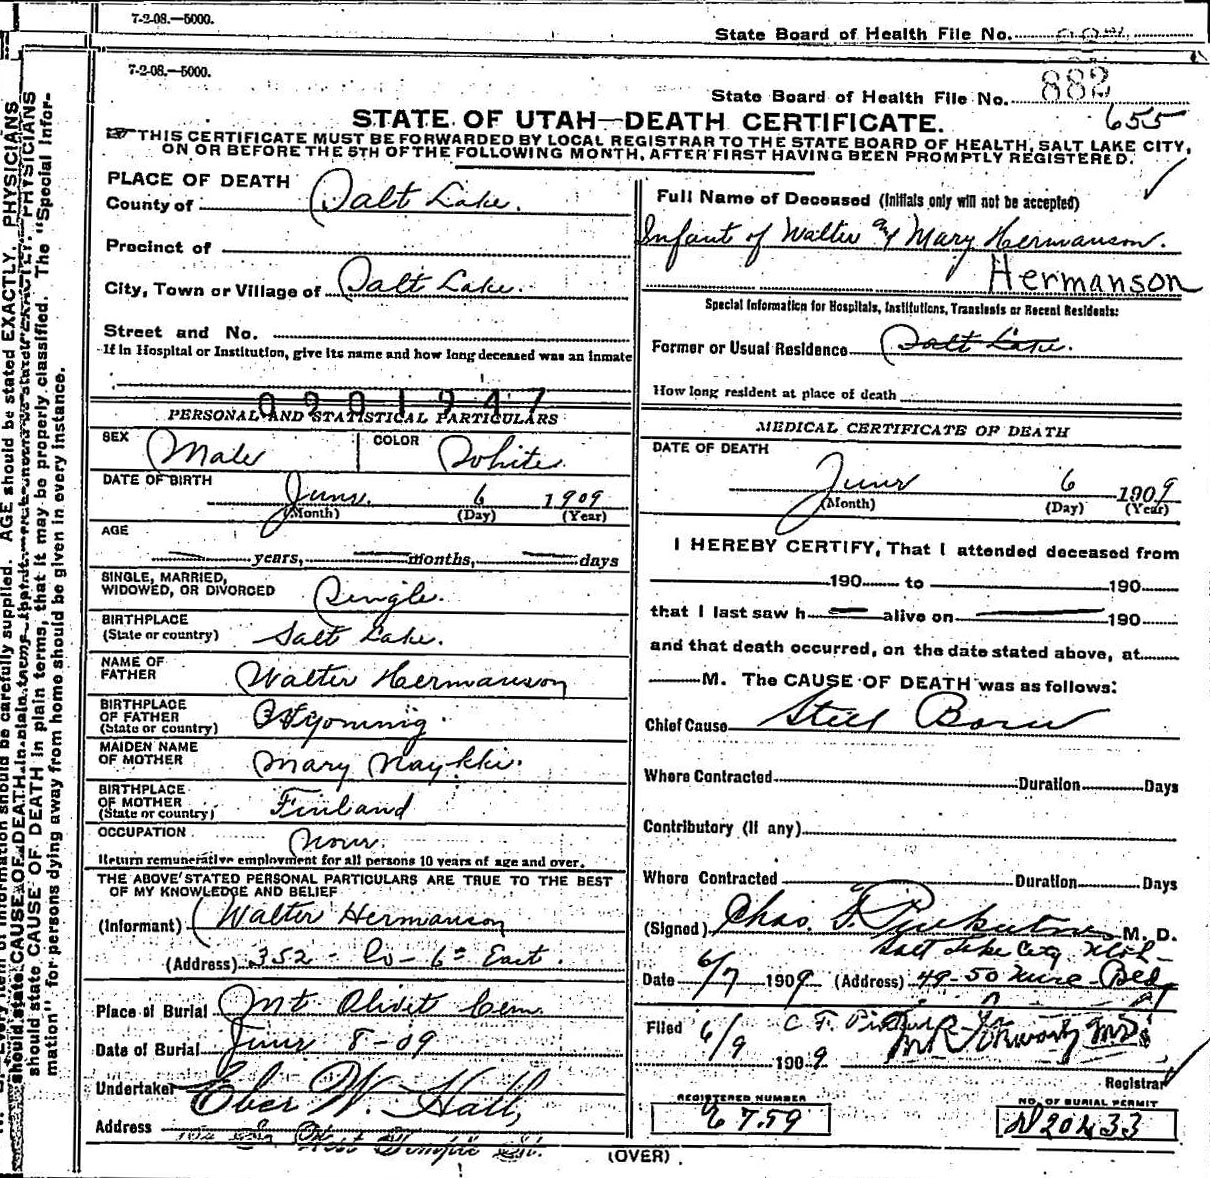 7-2-08.—5000.
State Board of Health File No.
7-2-08.—5000.
State Board of Health File No. 882
655
STATE OF UTAH—DEATH CERTIFICATE.
THIS CERTIFICATE MUST BE FORWARDED BY LOCAL REGISTRAR TO THE STATE BOARD OF HEALTH, SALT LAKE CITY,
ON OR BEFORE THE 5TH OF THE FOLLOWING MONTH, AFTER FIRST HAVING BEEN PROMPTLY REGISTERED.
PLACE OF DEATH
County of Salt Lake.
Precinct of
City, Town or Village of Salt Lake.
Street and No.
If in Hospital or Institution, give its name and how long deceased was an inmate
0201947
PERSONAL AND STATISTICAL PARTICULARS
SEX Male COLOR White.
DATE OF BIRTH
June. 6 1909
(Month) (Day) (Year)
AGE
years, months, days
SINGLE, MARRIED,
WIDOWED, OR DIVORCED Single.
BIRTHPLACE
(State or country) Salt Lake.
NAME OF
FATHER Walter Hermanson
BIRTHPLACE
OF FATHER
(State or country) Wyoming.
MAIDEN NAME
OF MOTHER Mary Naykki.
BIRTHPLACE
OF MOTHER
(State or country) Finland
OCCUPATION None.
Return remunerative employment for all persons 10 years of age and over.
THE ABOVE STATED PERSONAL PARTICULARS ARE TRUE TO THE BEST
OF MY KNOWLEDGE AND BELIEF
(Informant) Walter Hermanson
(Address) 352 - So - 6th East.
Place of Burial Mt Olivet Cem
Date of Burial June 8-09
Undertaker Eber W. Hall,
Address West Temple St.
Full Name of Deceased (Initials only will not be accepted)
Infant of Walter & Mary Hermanson.
Hermanson
Special Information for Hospitals, Institutions, Transients or Recent Residents:
Former or Usual Residence Salt Lake.
How long resident at place of death
MEDICAL CERTIFICATE OF DEATH
DATE OF DEATH
June 6 1909
(Month) (Day) (Year)
I HEREBY CERTIFY, That I attended deceased from
190 to 190
that I last saw h alive on 190
and that death occurred, on the date stated above, at
M. The CAUSE OF DEATH was as follows:
Chief Cause Still Born
Where Contracted Duration Days
Contributory (If any)
Where Contracted Duration Days
(Signed) Chas. F. M. D.
Salt Lake City Utah-
Date 6/7 1909 (Address) 49-50 Bldg
Filed 6/9 1909 C. F.
Registrar
REGISTERED NUMBER
NO. OF BURIAL PERMIT
N20433
(OVER)
AGE should be stated EXACTLY. PHYSICIANS
should state CAUSE OF DEATH in plain terms, that it may be properly classified. The "Special Infor-
mation" for persons dying away from home should be given in every instance.